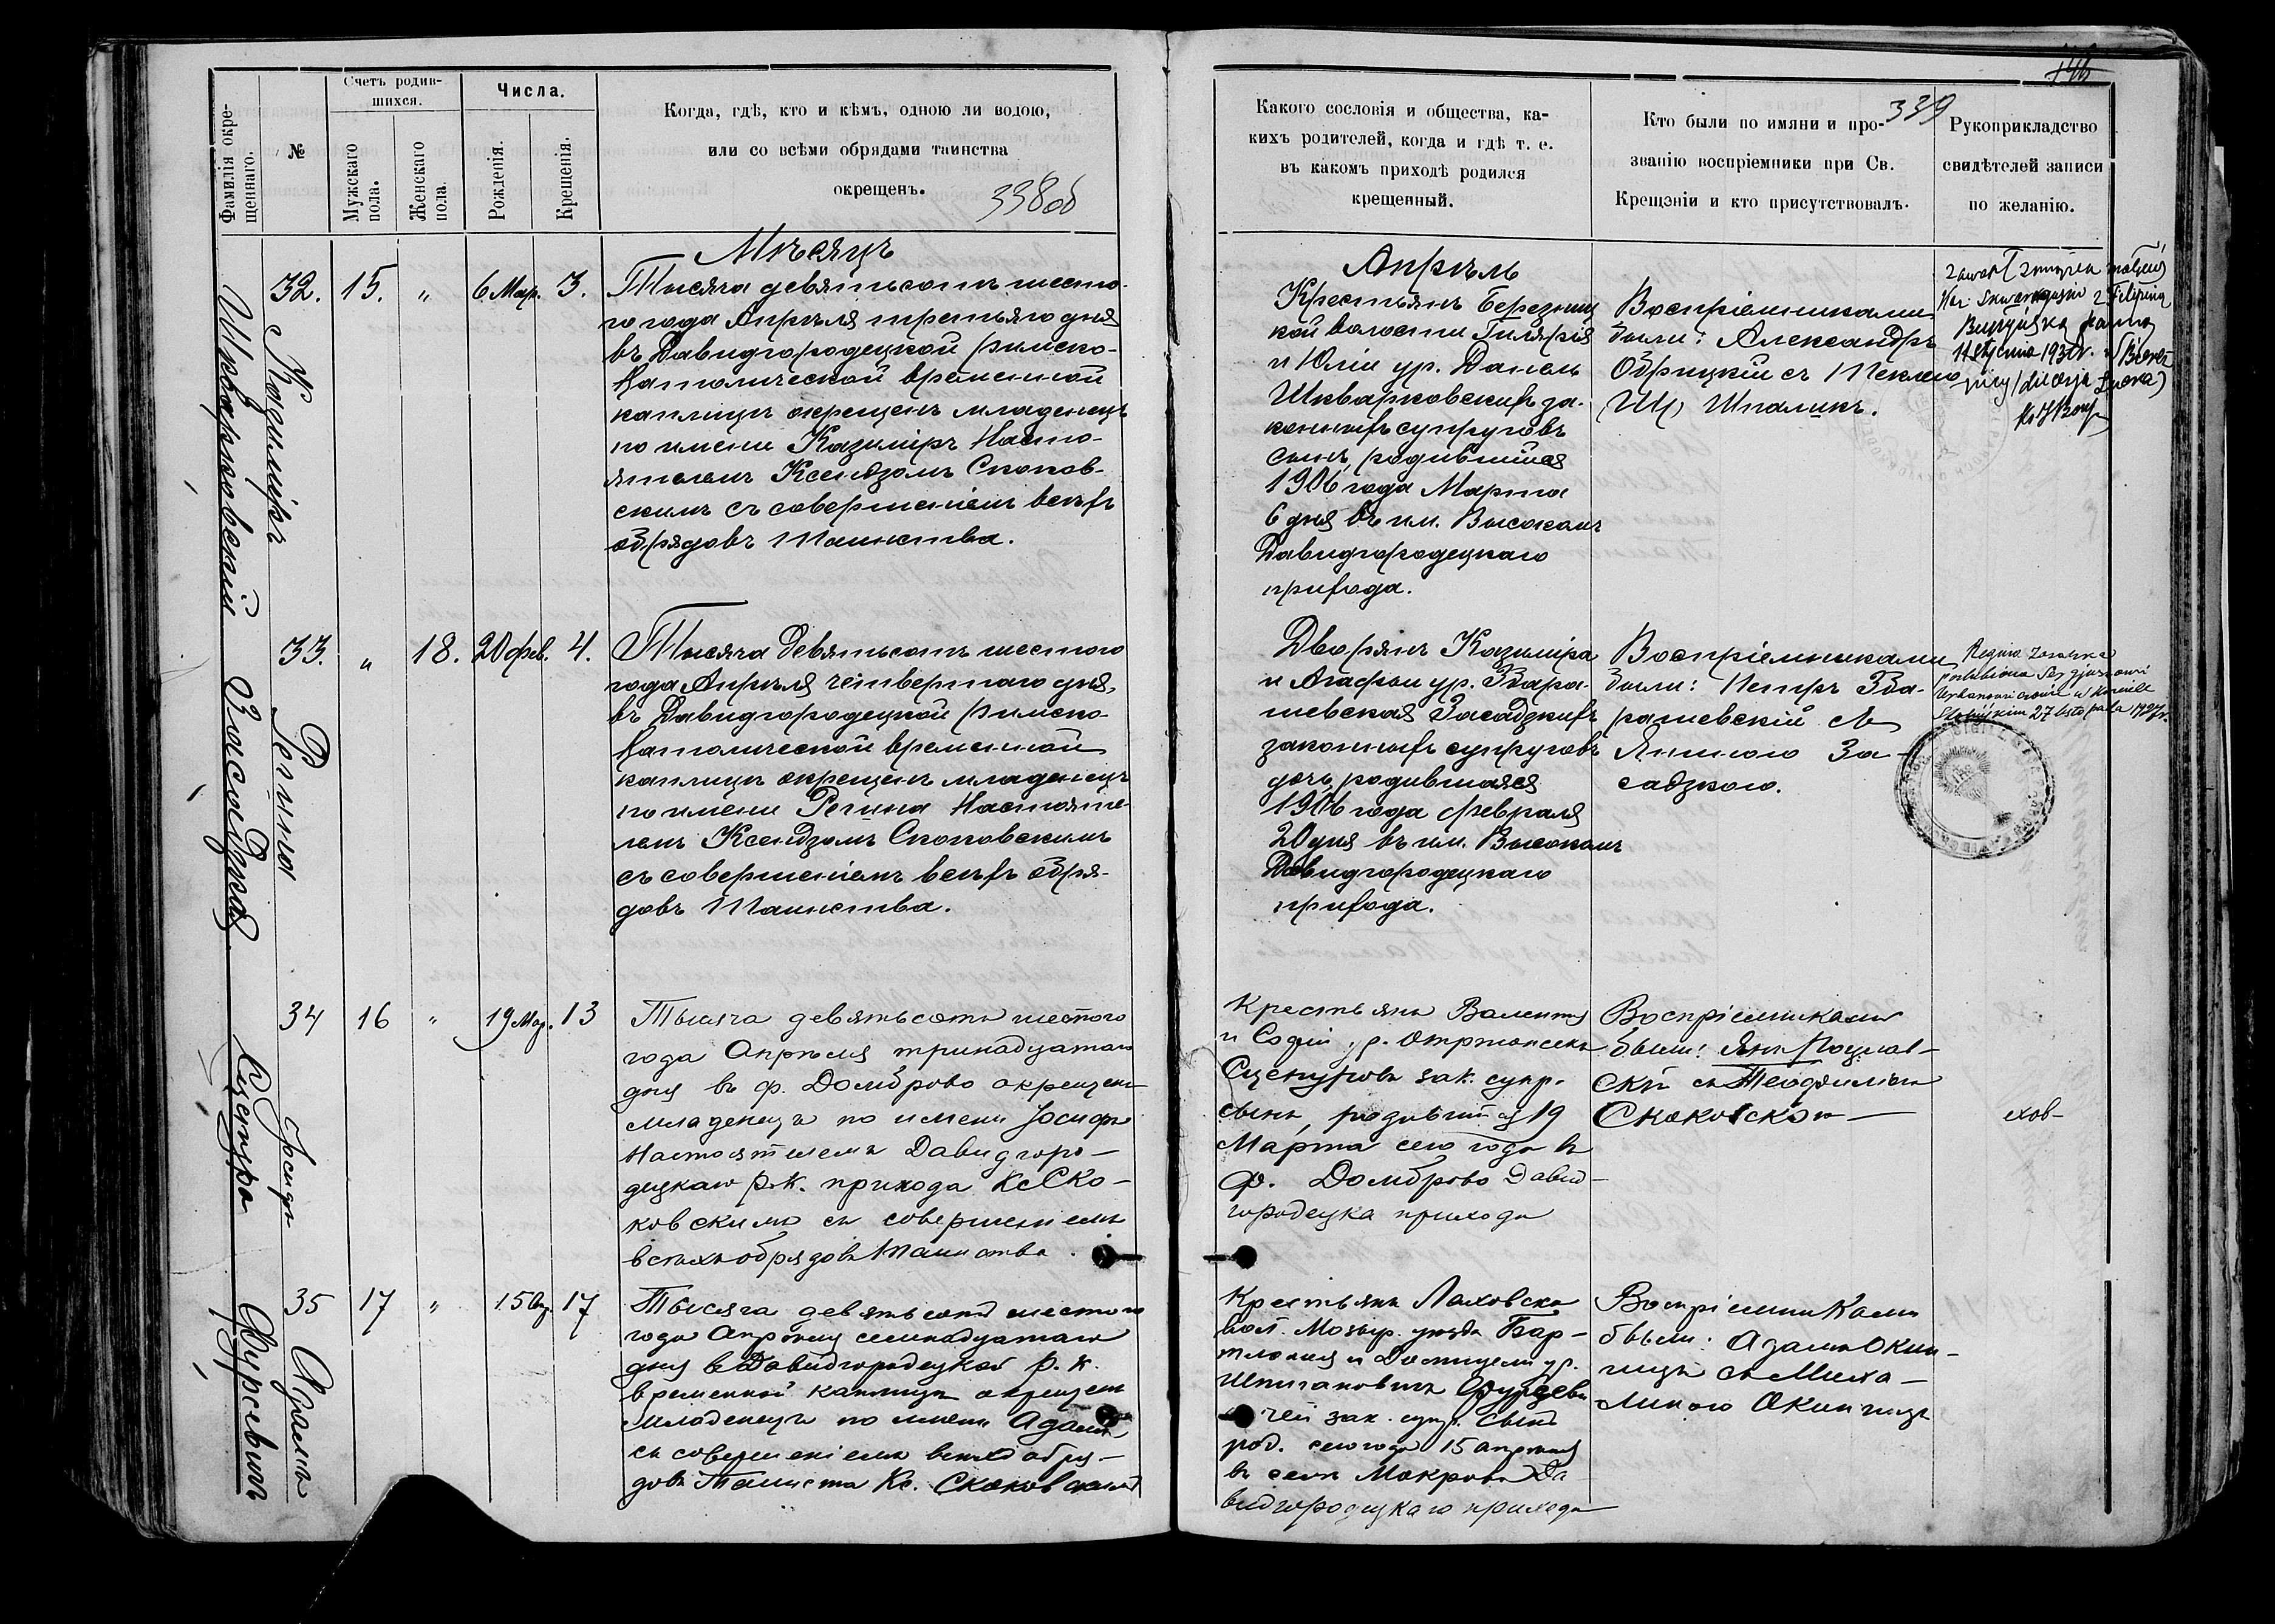 Фамилія окре-
щеннаго.
№
Счетъ родив-
шихся.
Мужскаго
пола.
Женскаго
пола.
Числа.
Рожденія.
Крещенія.
Когда, гдѣ, кто и кѣмъ, одною ли водою,
или со всѣми обрядами таинства
окрещенъ.
338об
Мѣсяцъ
Шкварковскій
Казиміръ
32.
15.
"
6 Мар.
3.
Тысяча девятьсотъ шесто-
го года Апрѣля третьяго дня
въ Давидгородецкой римско-
католической временной
каплицѣ окрещенъ младенецъ
по имени Казиміръ Насто-
ятелемъ Ксендзомъ Скоков-
скимъ съ совершеніемъ всѣхъ
обрядовъ Таинства.
Засадзкая
Регина
33.
"
18.
20 фев.
4.
Тысяча девятьсотъ шестого
года Апрѣля четвертаго дня,
въ Давидгородецкой римско-
католической временной
каплицѣ окрещенъ младенецъ
по имени Регина Настояте-
лемъ Ксендзомъ Скоковскимъ
съ совершеніемъ всѣхъ обря-
довъ Таинства.
Іосифъ
34
16
"
19 Мар.
13
Тысяча девятьсотъ шестого
года Апрѣля тринадцатаго
дня въ ф. Домброво окрещенъ
младенецъ по имени Іосифъ
Настоятелемъ Давидгоро-
децкаго р.к. прихода Кс Ско-
ковскимъ съ совершеніемъ
всѣхъ обрядовъ Таинства.
Фурсевичъ
Адамъ
35
17
"
15 Ап.
17
Тысяча девятьсотъ шестого
года Апрѣля семнадцатаго
дня въ Давидгородецкой р. к.
временной каплицѣ окрещенъ
младенецъ по имени Адамъ
съ совершеніемъ всѣхъ обря-
довъ Таинства Кс. Скоковскимъ
146
339
Какого сословія и общества, ка-
кихъ родителей, когда и гдѣ т. е.
въ какомъ приходѣ родился
крещенный.
Кто были по имяни и про-
званію воспріемники при Св.
Крещэніи и кто присутствовалъ.
Рукоприкладство
свидѣтелей записи
по желанію.
Апрѣль
Крестьянъ Березниц
кой волости Гилярія
и Юліи ур. Данель
Шкварковскихъ за-
конныхъ супруговъ
сынъ, родившійся
1906 года Марта
6 дня въ им. Высокомъ
Давидгородецкаго
прихода.
Воспріемниками
были: Александръ
съ Теклею
Шпаликъ.
małżeń
z Filipiną
panną
11 stycznia 193
Дворянъ Казиміра
и Агафіи ур. Звара-
шевская Засадзкихъ
законныхъ супруговъ
дочь, родившаяся
1906 года февраля
20 дня въ им. Высокомъ
Давидгородецкаго
прихода.
Воспріемниками
были: Петръ Зва-
рашевскій съ
Яниною За-
садзкою.
Regina Zasadzka
poślubiona Sergjuszowi
w Kościele
27 listopada 1927 r.
Крестьянъ
и Софіи ур.
зак. супр.
сынъ, родившійся 19
Марта сего года въ
ф. Домброво Давид-
городецка прихода
Воспріемниками
были: Янъ
скій съ Теофиліею
Скоковскою
Крестьянъ Лаховска
вол. Мозыр. уѣзда Бар-
ур.
зак. супр. сынъ
род. сего года 15 апрѣля
въ селѣ Мокрово Да
видгородецкаго прихода
Воспріемниками
были: Адамъ Окин-
чицъ съ Миха-
линою Окинчицъ